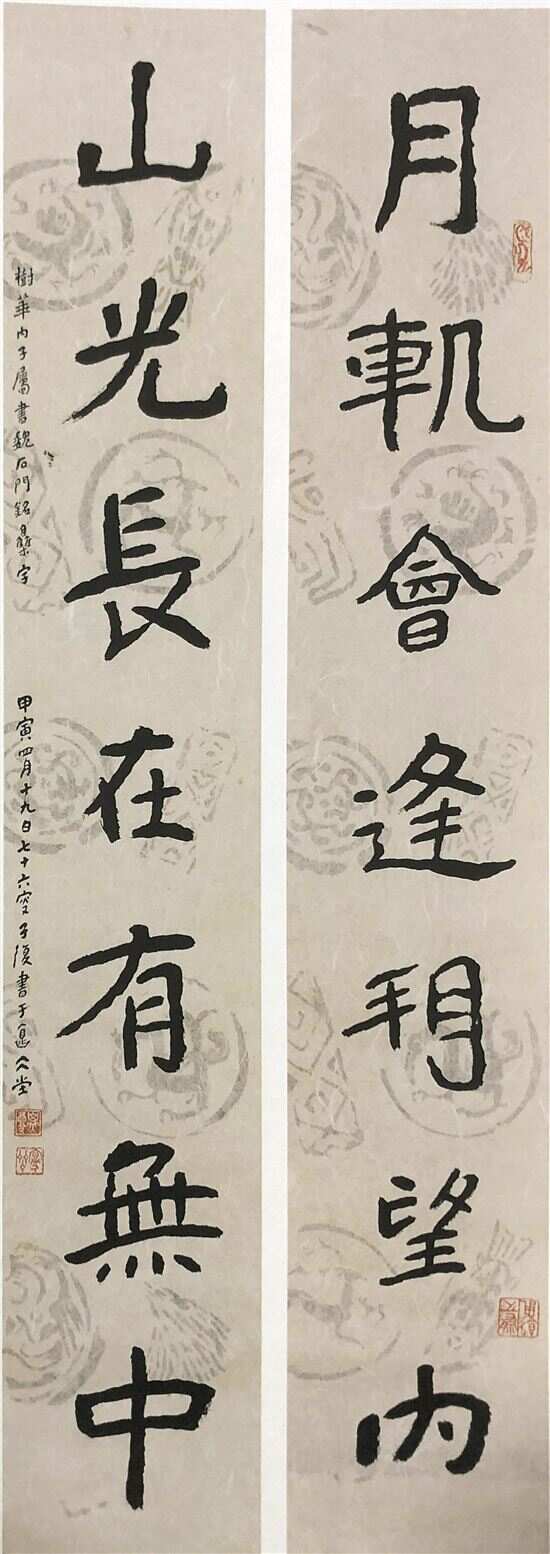 月軌會逢朔望內
山光長在有無中
樹華內子屬書魏石門銘集字
甲寅四月十九日七十六叟子復書于堂